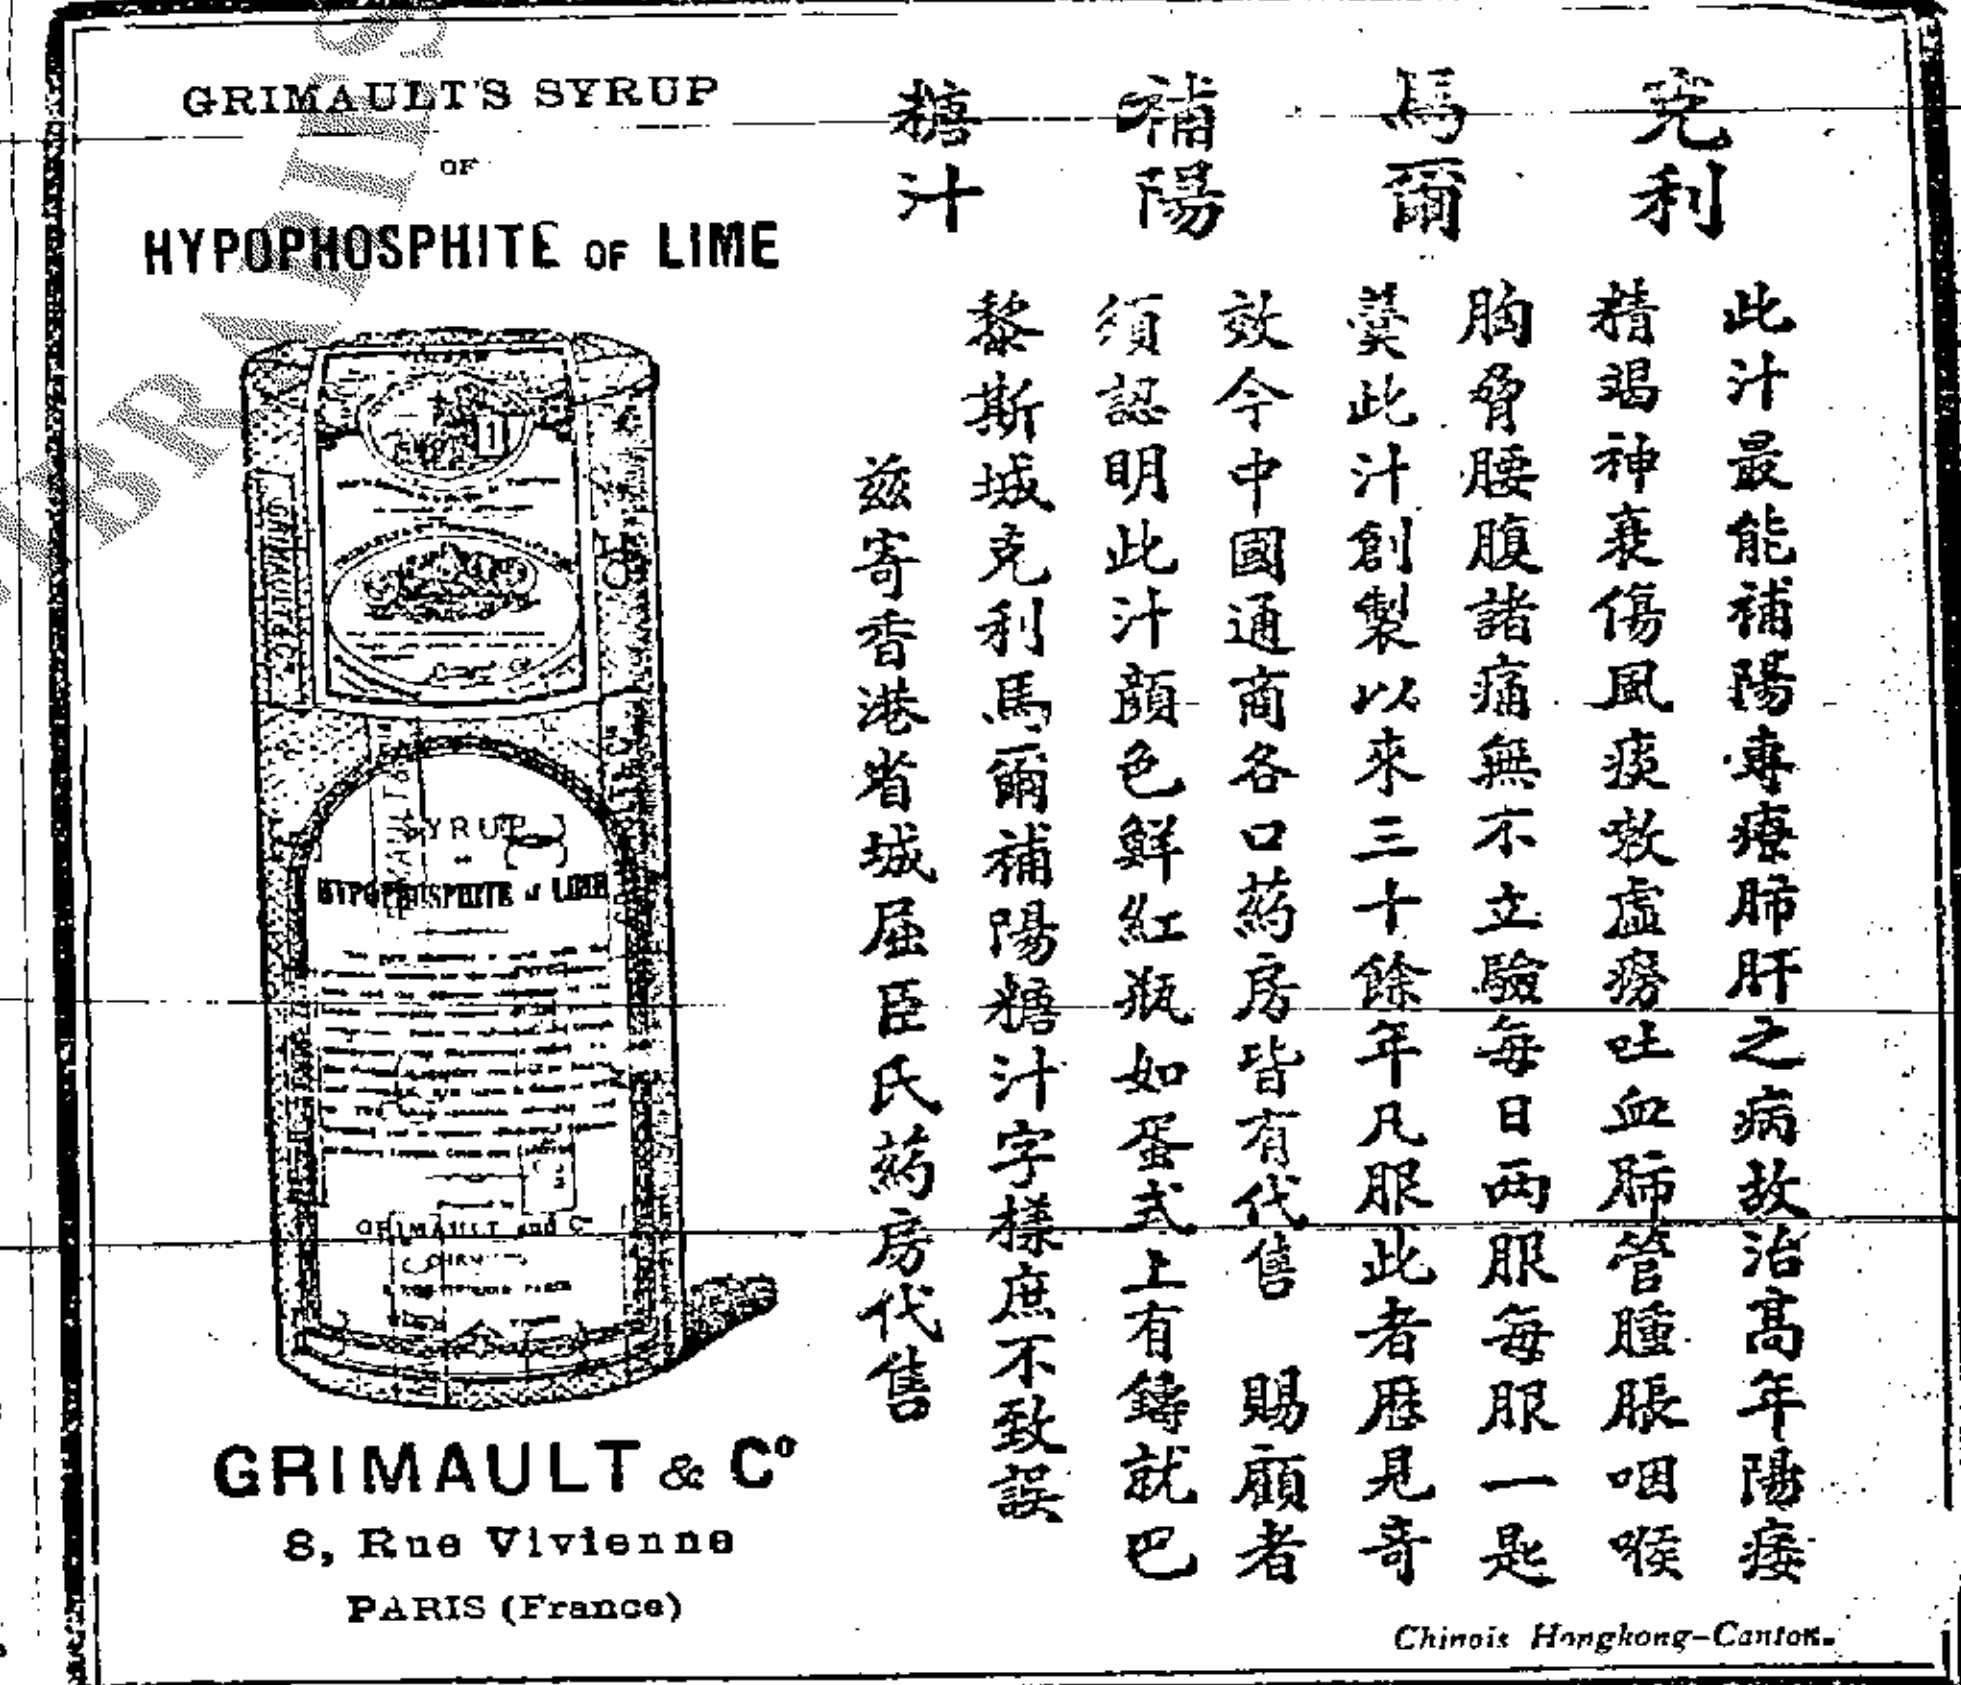 GRIMAULT'S SYRUP
OF
HYPOPHOSPHITE OF LIME
GRIMAULT & Cº
SYRUP
OF
HYPOPHOSPHITE of LIME
GRIMAULT AND Cº
GRIMAULT & Cº
8, Rue Vivienne
PARIS (France)
克利
馬爾
補陽
糖汁
此汁最能補陽專療肺肝之病故治高年陽痿
精竭神衰傷風痰咳虛癆吐血肺管腫脹咽喉
胸脅腰腹諸痛無不立驗每日两服每服一匙
羹此汁創製以來三十餘年凡服此者歷見奇
效今中國通商各口葯房皆有代售 賜顧者
須認明此汁顏色鮮紅瓶如蛋式上有鑄就巴
黎斯城克利馬爾補陽糖汁字樣庶不致誤
茲寄香港省城屈臣氏葯房代售
Chinois Hongkong-Canton.